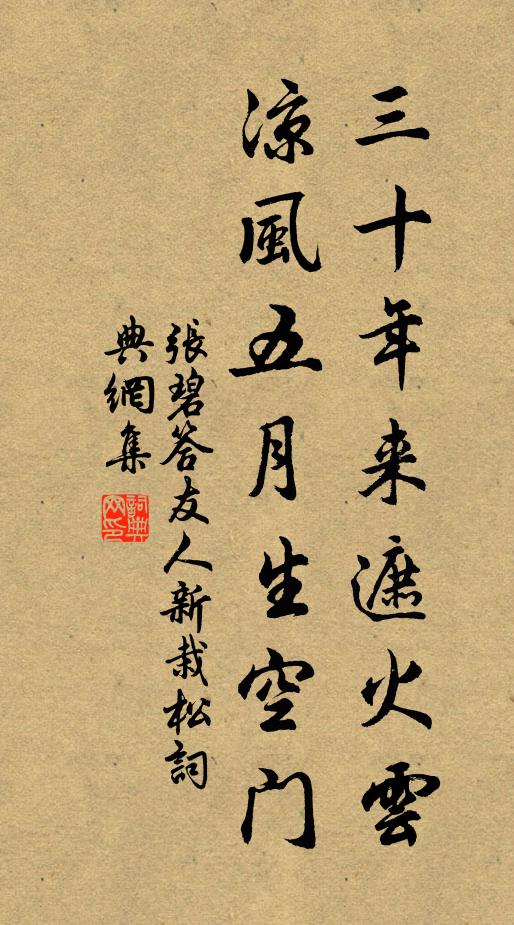 三十年来遮火雲
凉風五月生空門
張碧答友人新栽松詞
典網集
詞典網印